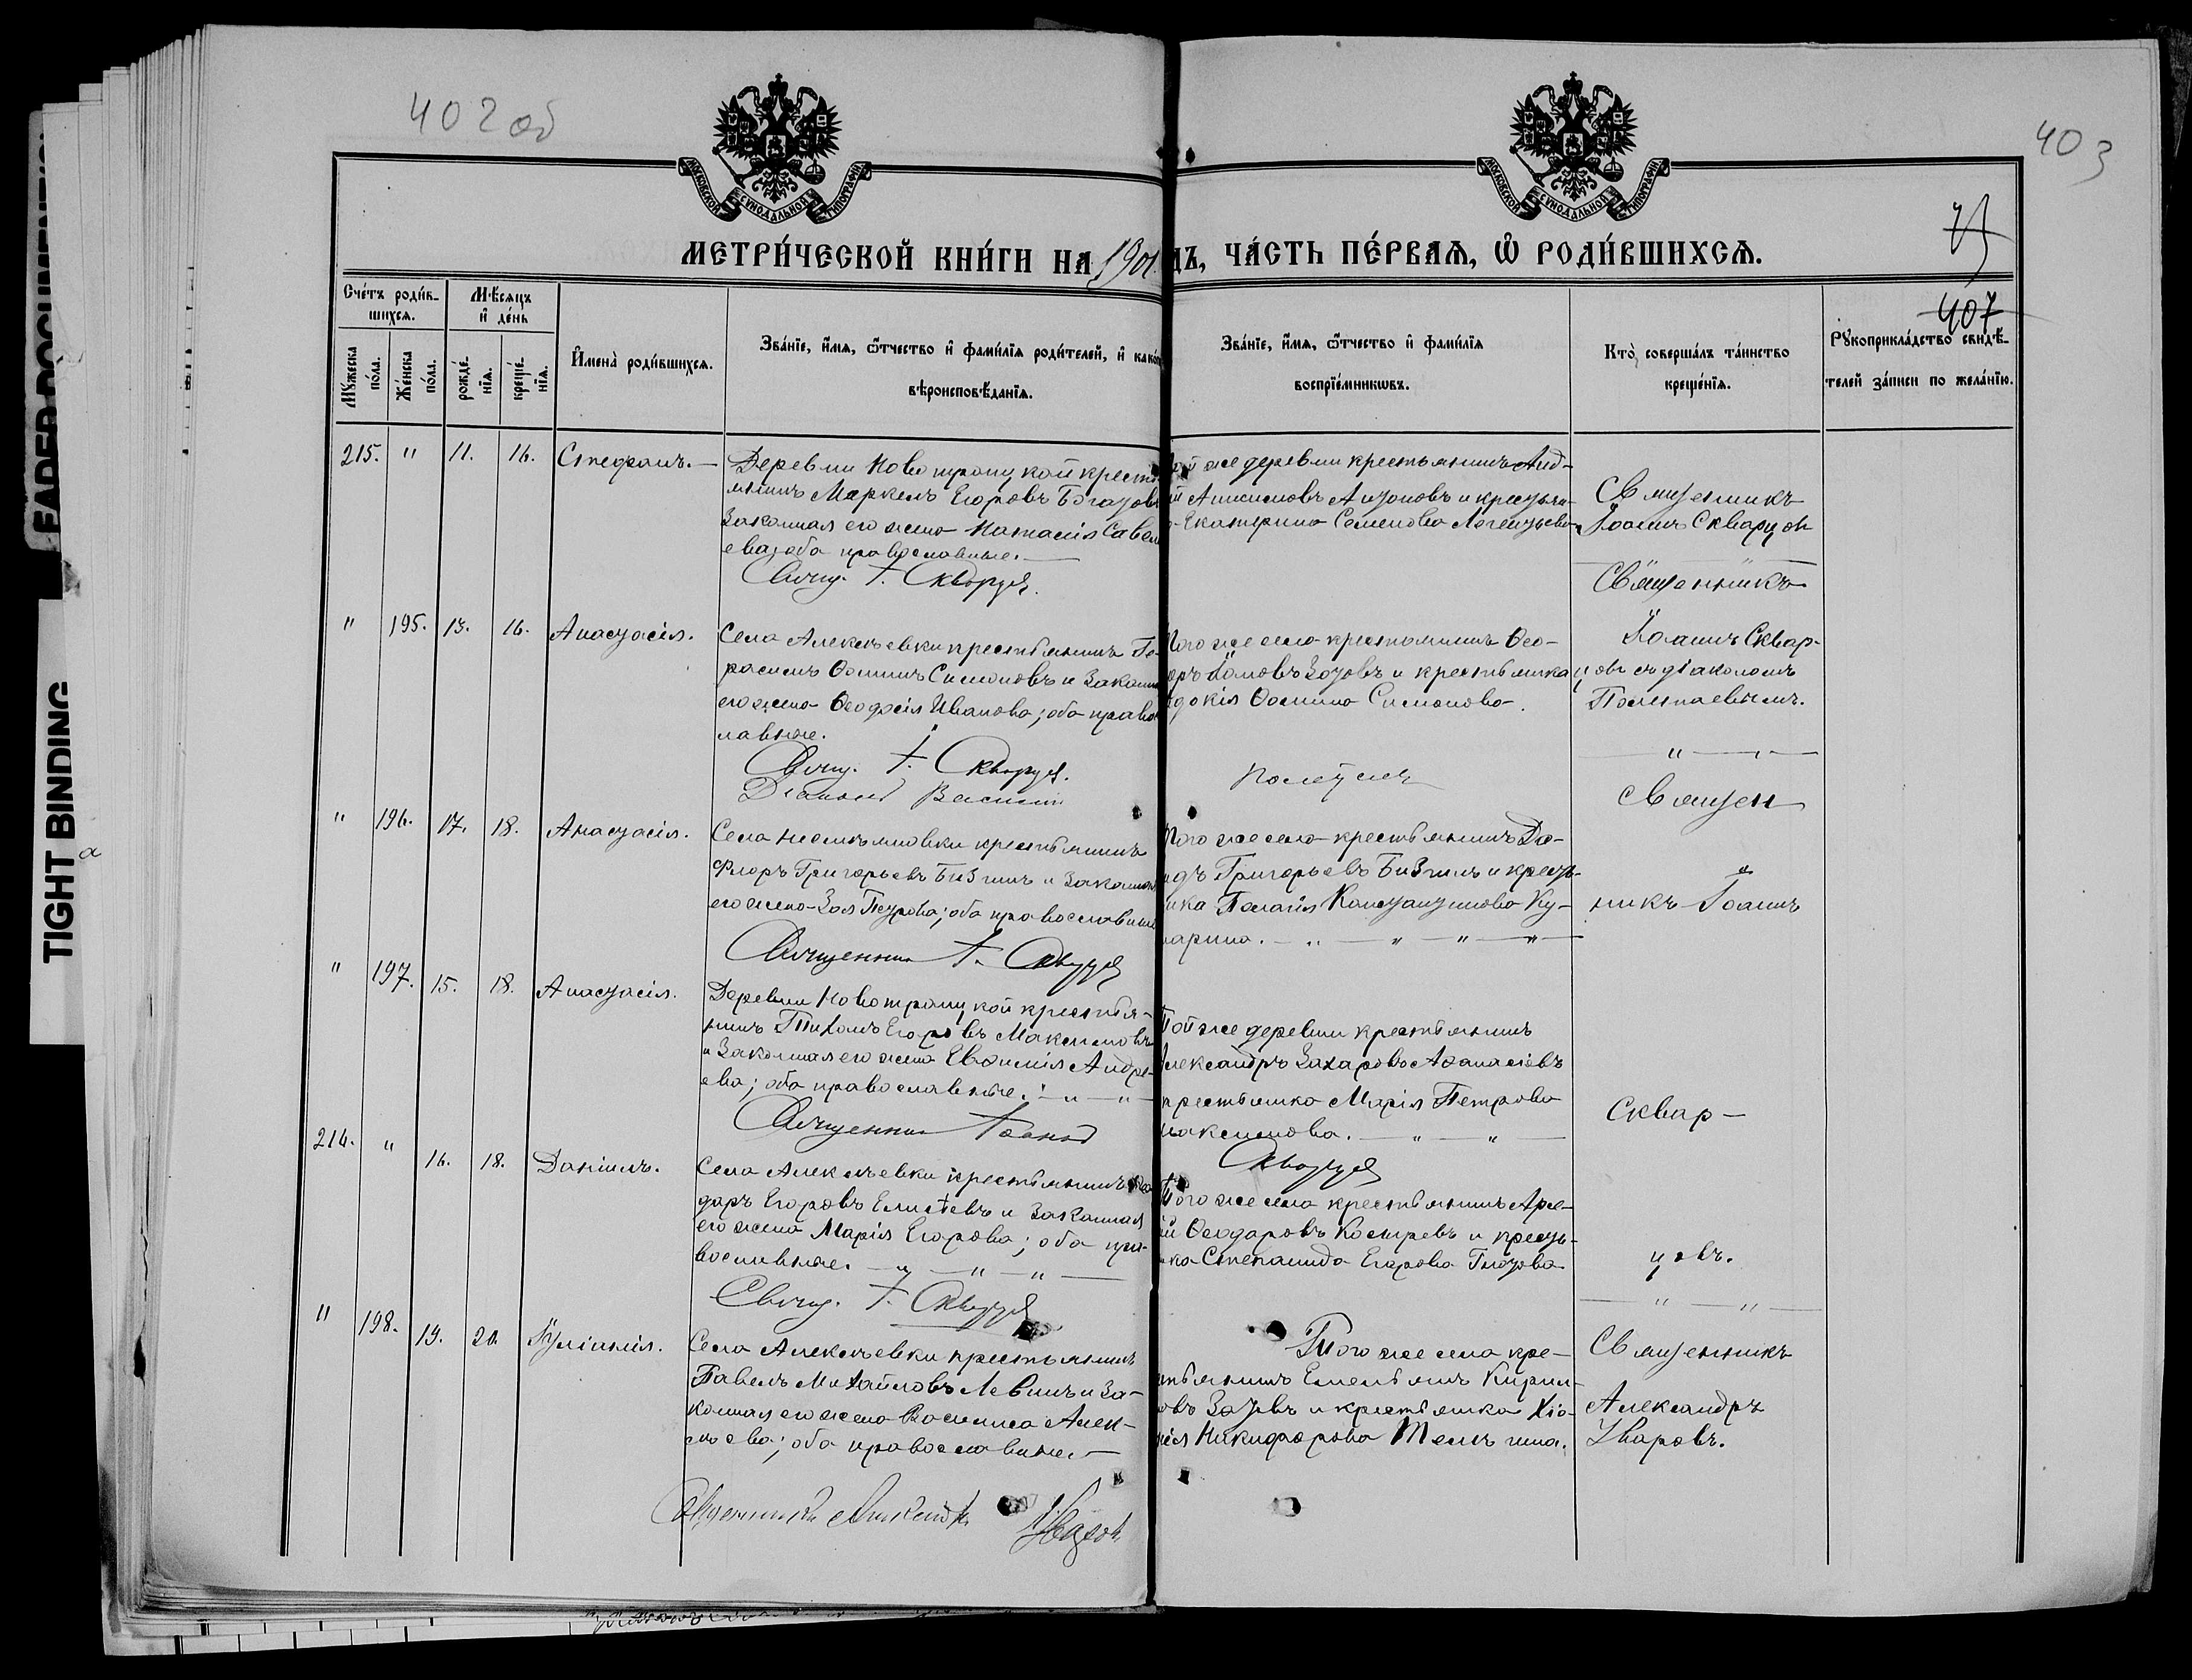 402 об
403
МОСКОВСКОЙ СУНОДАЛЬНОЙ ТИПОГРАФІИ
МОСКОВСКОЙ СУНОДАЛЬНОЙ ТИПОГРАФІИ
75
МЕТРИ́ЧЕСКОЙ КНИ́ГИ НА 1901
ДЪ, ЧА́СТЬ ПЕ́РВАѦ, Ѡ РОДИ́ВШИХСѦ.
407
Сче́тъ роди́в-
шихсѧ.
Мѣсяцъ
и де́нь
Мꙋжеска по́ла.
Же́нска по́ла.
рожде́нїѧ.
креще́нїѧ.
И́мена̀ роди́вшихсѧ.
Зва́нїе, и́мѧ, ѻ҆́тчество и фами́лїѧ роди́телей, и како
вѣроисповѣ́данїѧ.
Зва́нїе, и́мѧ, ѻ҆́тчество и фами́лїѧ
воспрїе́мникѡвъ.
Кто̀ соверша́лъ та́инство
креще́нїѧ.
Рꙋкоприкла́дство свидѣ́-
телей за́писи по жела́нїю.
215. " 11. 16. Стефанъ.
Деревни Новотроицкой кресть
янинъ Маркелъ Егоровъ Богатов
законная его жена Наталія Савел
ева; оба православные.
Свящ. І. Скворцов
ой же деревни крестьянинъ Анд-
ей Анисимовъ Агаповъ и крестьян
Екатерина Семенова
Священникъ
Іоаннъ Скварцов
" 195. 13. 16. Анастасія.
Села Алексѣевки крестьянинъ Ге-
расимъ Ѳоминъ Симоновъ и законн
его жена Ѳеодосія Иванова; оба правос
лавные.
Свящ. І. Скворцов.
Діаконъ Василій
Того же села крестьянинъ Ѳео-
доръ Зотовъ и крестьянка
докія Ѳомина Симонова.
Полетаевъ
Священникъ
Іоаннъ Сквар-
цовъ съ діакономъ
Полетаевымъ.
" 196. 17. 18. Анастасія.
Села крестьянинъ
Флоръ Григорьевъ Бизинъ и законная
его жена Зоя Петрова; оба православные
Священникъ І. Скворцов
Того же села крестьянинъ Да-
идъ Григорьевъ Бизинъ и кресть-
нка Пелагія Константинова Ку-
царина.
Священ
никъ Іоаннъ
" 197. 15. 18. Анастасія.
Деревни Новотроицкой крестья-
нинъ Тихонъ Егоровъ Максимовъ
и законная его жена Евѳимія Андре-
ева; оба православные.
Священникъ Іоаннъ
Той же деревни крестьянинъ
лександръ Захаровъ Аѳанасіевъ
крестьянка Марія Петрова
Максимова.
Скворцов
Сквар-
216. " 16. 18. Даніилъ.
Села Алексѣевки крестьянинъ Ѳео
доръ Егоровъ Елисѣевъ и законная
его жена Марія Егорова; оба пра-
вославные.
Свящ. І. Скворцов
Того же села крестьянинъ Арсе-
ій Ѳеодоровъ Косыревъ и кресть-
нка Степанида Егорова Глотова
цовъ.
" 198. 19. 20. Іуліанія.
Села Алексѣевки крестьянинъ
Павелъ Михайловъ Левинъ и за-
конная его жена Василиса Алек-
сѣева; оба православные.
Священникъ Александръ Уваровъ
Того же села кре-
стьянинъ Емельянъ Кирил-
овъ Зотовъ и крестьянка Хіо-
нія Никифорова Телѣгина.
Священникъ
Александръ
Уваровъ.
FADED DOCUMENT(S)
TIGHT BINDING